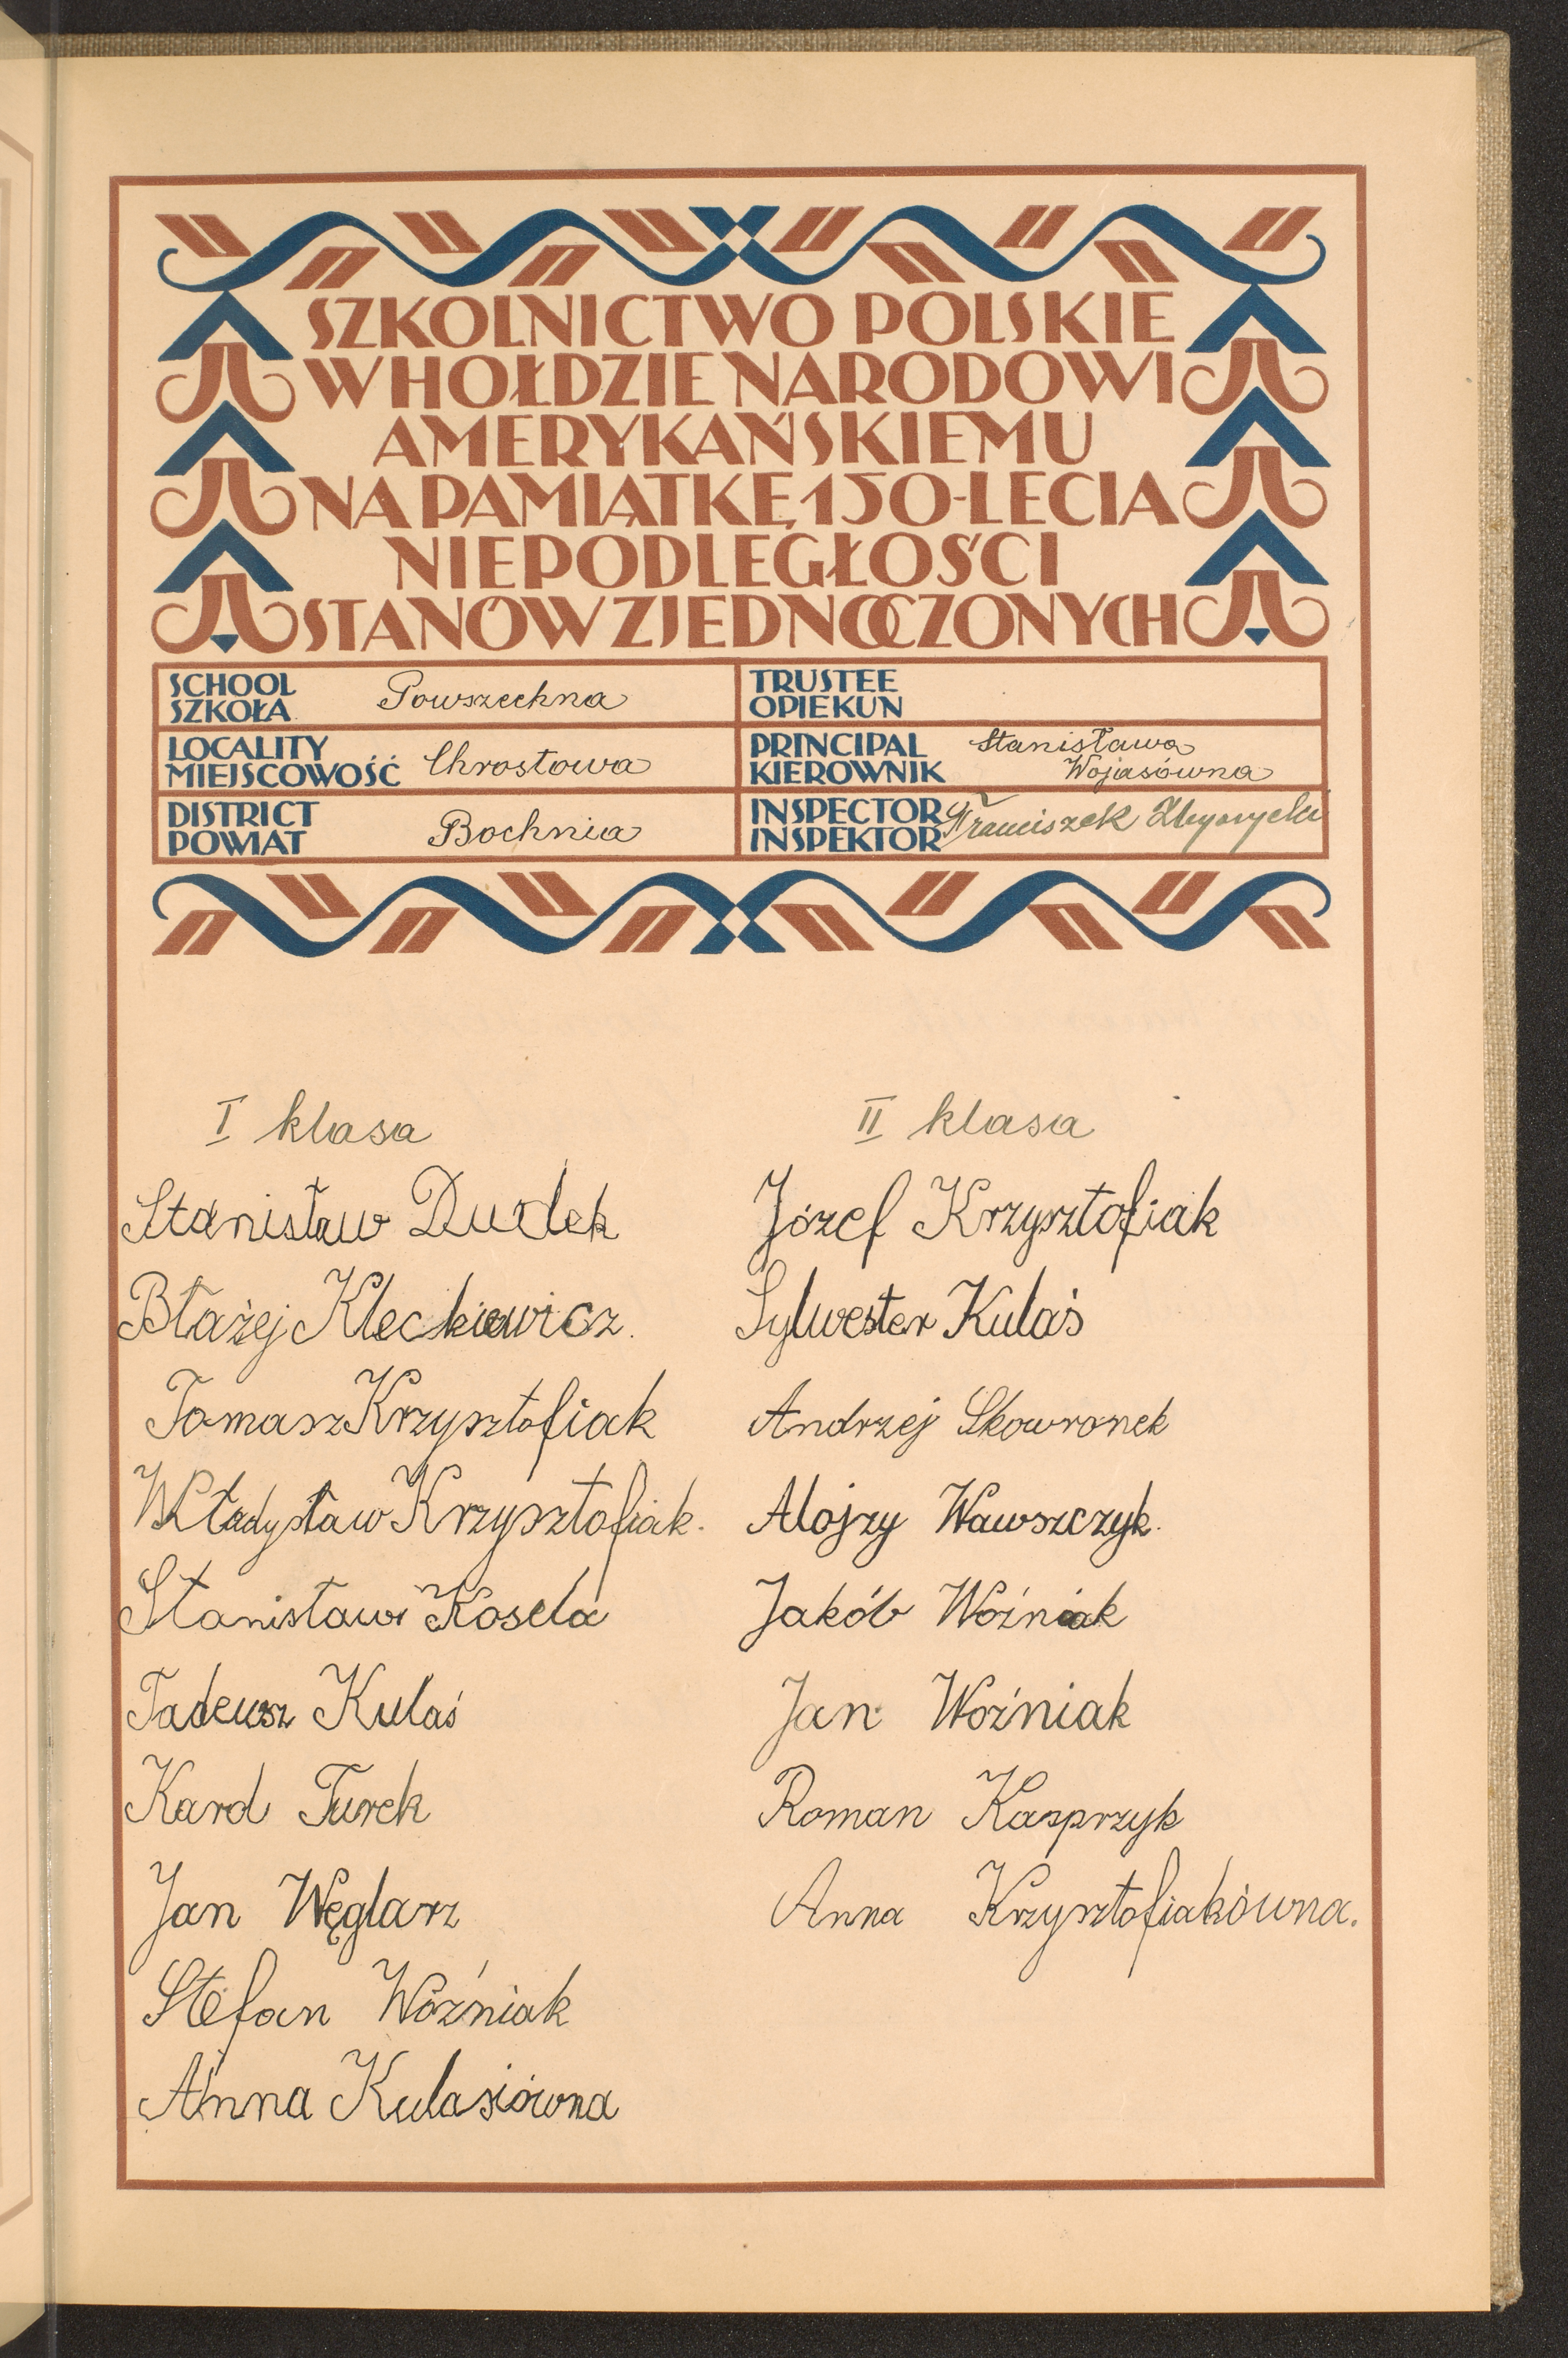 SZKOLNICTWO POLSKIE
W HOŁDZIE NARODOWI
AMERYKAŃSKIEMU
NA PAMIĄTKĘ 150-LECIA
NIEPODLEGŁOŚCI
STANÓW ZJEDNOCZONYCH
SCHOOL
SZKOŁA
Powszechna
TRUSTEE
OPIEKUN
LOCALITY
MIEJSCOWOŚĆ
Chrostowa
PRINCIPAL
KIEROWNIK
Stanisława
Wojasówna
DISTRICT
POWIAT
Bochnia
INSPECTOR
INSPEKTOR
Franciszek
I klasa
Stanisław Dudek
Błażej Kleckiewicz.
Tomasz Krzysztofiak
Władysław Krzysztofiak.
Stanisław Kosela
Tadeusz Kulaś
Karol Turek
Jan Węglarz
Stefan Woźniak
Anna Kulasiówna
II klasa
Józef Krzysztofiak
Sylwester Kulaś
Andrzej Skowronek
Alojzy Wawszczyk.
Jakób Woźniak
Jan Woźniak
Roman Kasprzyk
Anna Krzysztofiakówna.